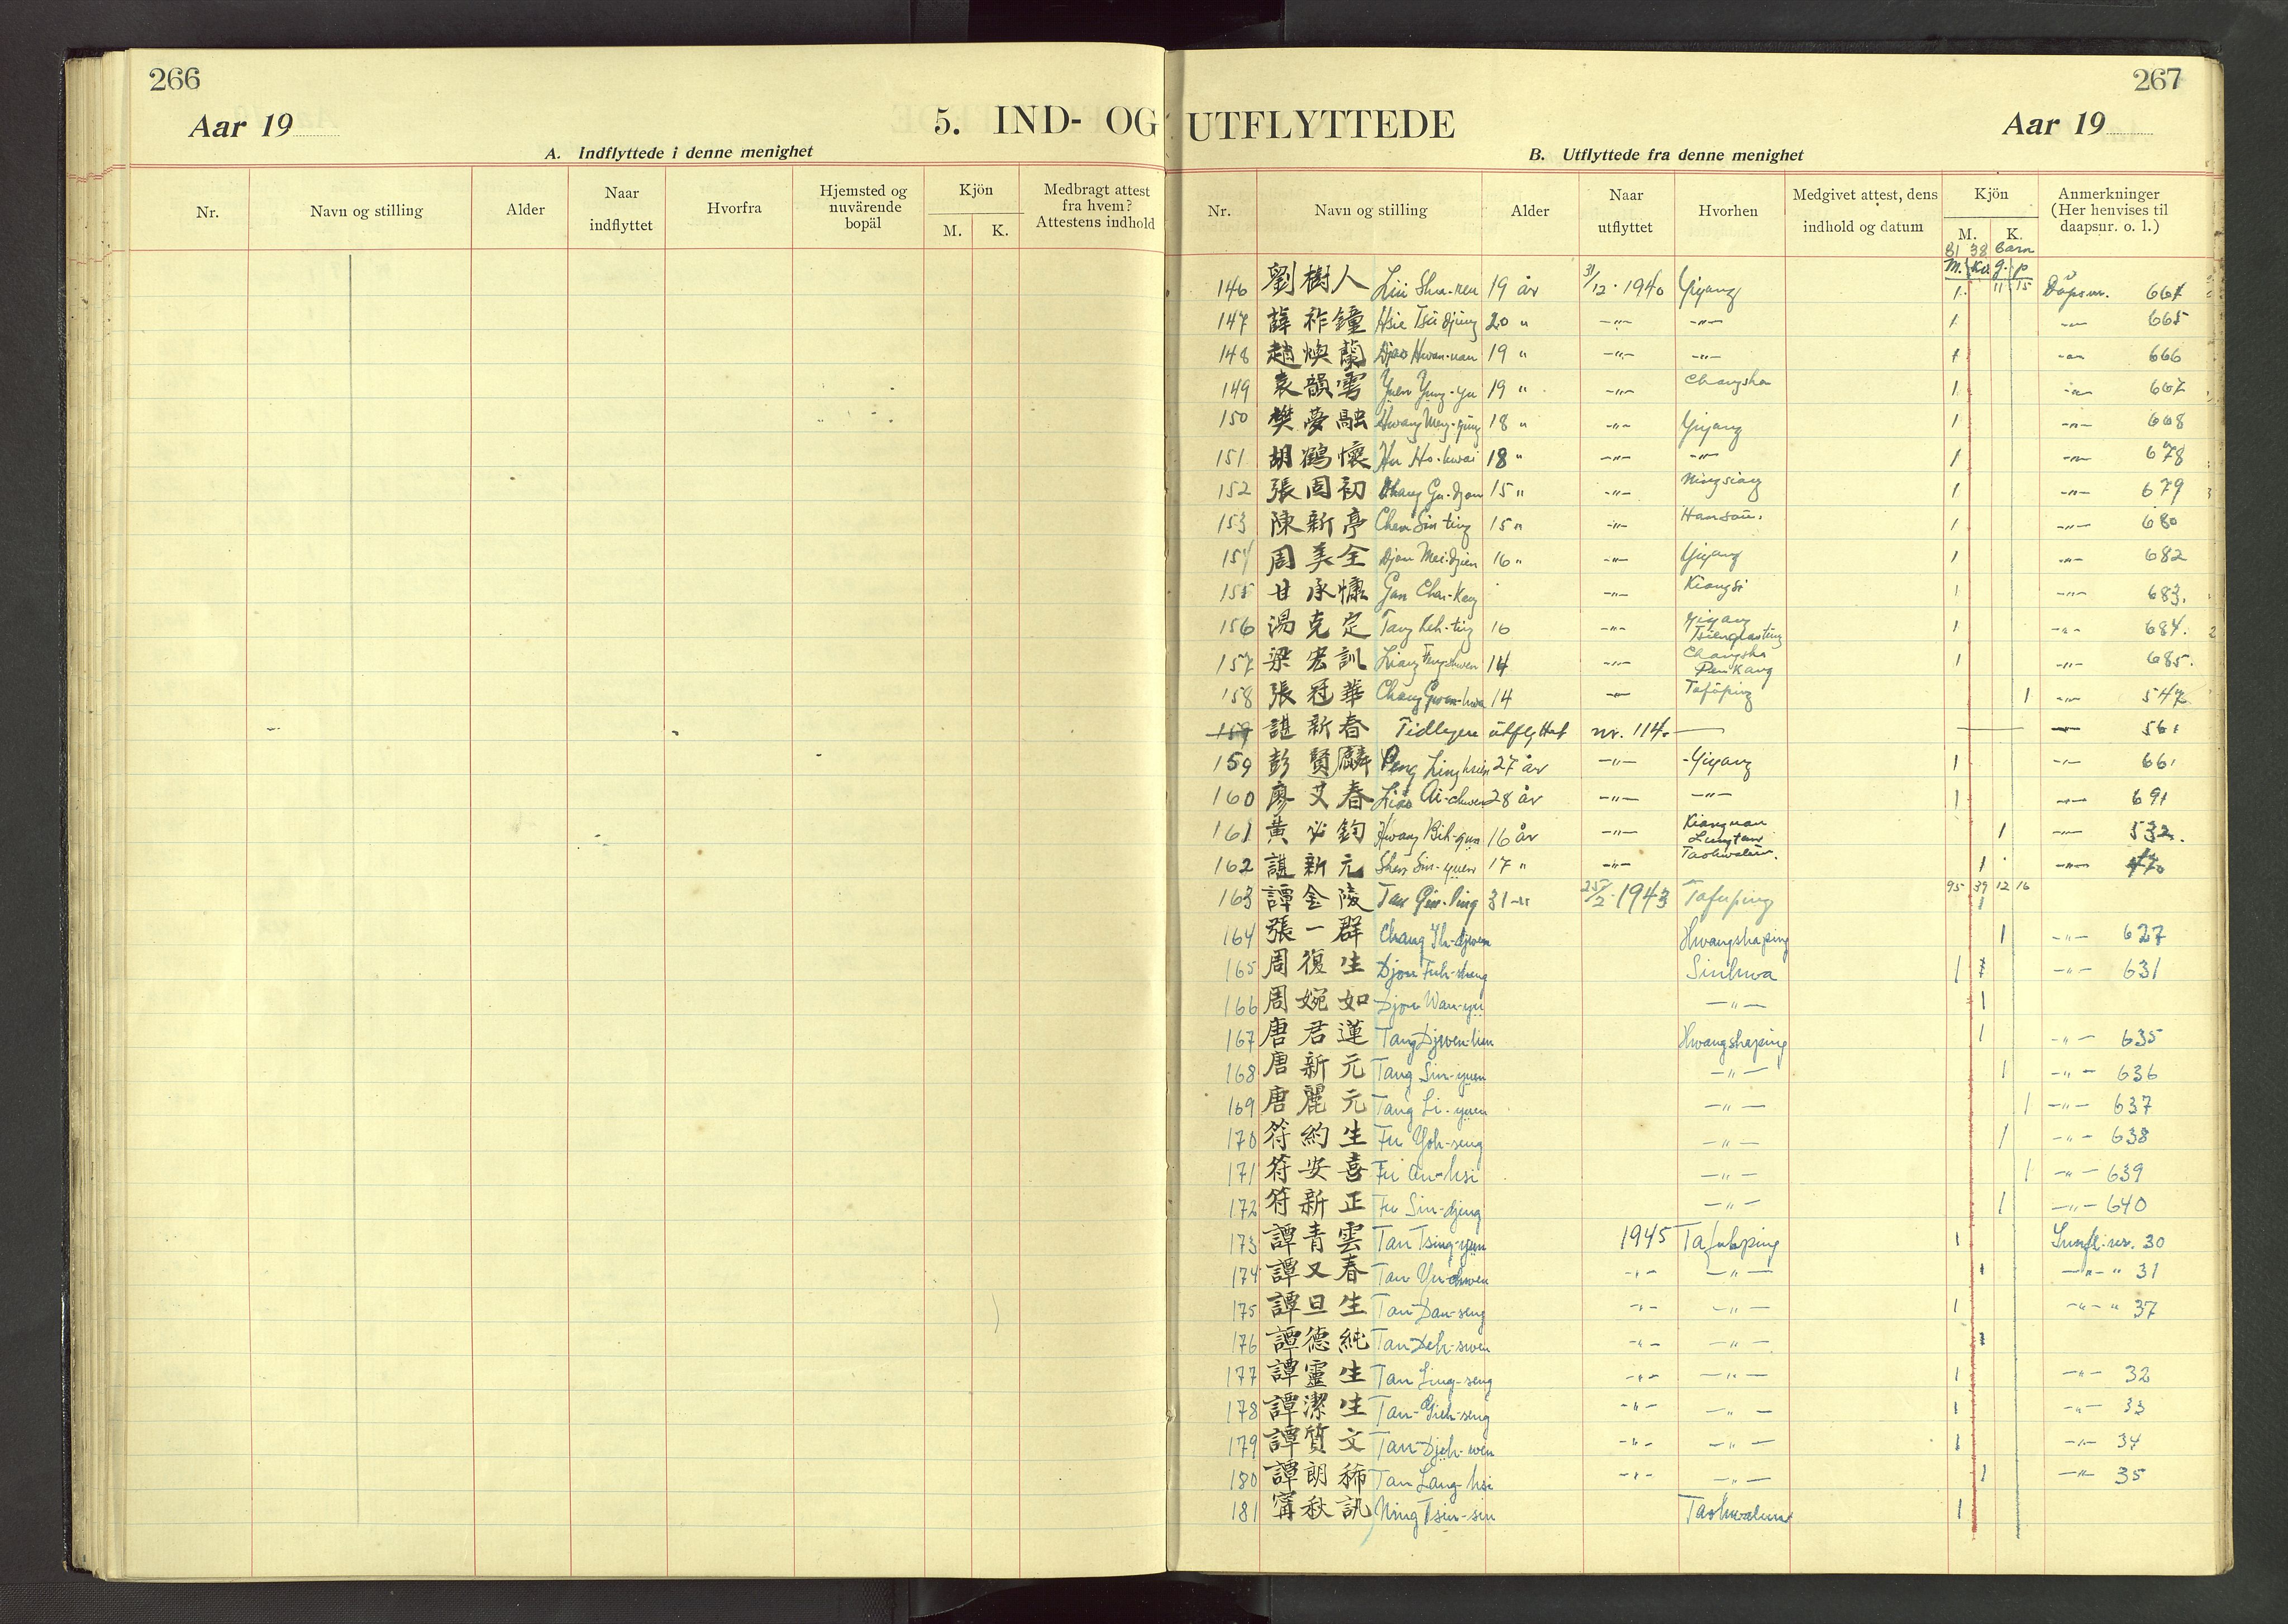 266
267
Aar 19
5. IND- OG UTFLYTTEDE
Aar 19
A. Indflyttede i denne menighet
B. Utflyttede fra denne menighet
Nr. Navn og stilling Alder Naar indflyttet Hvorfra Hjemsted og nuværende bopäl Kjön M. K. Medbragt attest fra hvem? Attestens indhold
Nr. Navn og stilling Alder Naar utflyttet Hvorhen Medgivet attest, dens indhold og datum Kjön M. K. Anmerkninger (Her henvises til daapsnr. o. l.)
81 38 Barn
M. Kv. g. p
11 15
146 劉樹人 Liu Shu-ren 19 år 31/12 . 1940 Yiyang 1 Dåpsnr. 664
147 薛祚鐘 Hsie Tsü djüng 20 " -"- -"- 1 -"- 665
148 趙煥蘭 Djao Hwan-nan 19 " -"- -"- 1 -"- 666
149 袁韻雩 Yuen Yung-yu 19 " -"- Changsha 1 -"- 667
150 樊夢融 Hwang Meng-yüng 18 " -"- Yiyang 1 -"- 668
151 胡鶴懷 Hu Ho-hwai 18 " -"- -"- 1 -"- 678
152 張固初 Chang Gu-djou 15 " -"- Ningsiang 1 -"- 679
153 陳新亭 Chen Sin ting 15 " -"- Hansou. 1 -"- 680
154 周美全 Djou Mei-djien 16 " -"- Yiyang 1 -"- 682
155 甘承慷 Gan Chen-Kang -"- Kiangsi 1 -"- 683.
156 湯克定 Tang Keh-ting 16 -"- Yiyang Tsienqiaoting 1 -"- 684.
157 梁宏訓 Liang Feng-hwen 14 -"- Changsha Penkang 1 -"- 685.
158 張冠華 Chang Gwan-hwa 14 -"- Tafuping 1 -"- 547
159 諶新春 Tidligere utflyttet nr. 114. — 561
159 彭賢麟 Peng Ling hsien 27 år -"- -Yiyang 1 -"- 661
160 廖艾春 Liao Ai-chwen 28 år -"- -"- 1 -"- 691
161 黃必鈞 Hwang Bih-qun 16 år -"- Kianguan Lungtan 1 -"- 532.
162 諶新元 Shen Sin-yuen 17 " -"- Taohwalun. 1 -"-
95 39 12 16
163 譚金陵 Tan Gin-ling 31 -"- 25/2 . 1943 Tafuping 1
164 張一群 Chang Yh-djwen Hwangshaping 1 -"- 627
165 周復生 Djou Fuh-sheng Sinhwa 1 -"- 631
166 周婉如 Djou Wan-yu -"- 1
167 唐君蓮 Tang Djwen-lien Hwangshaping 1 -"- 635
168 唐新元 Tang Sin-yuen -"- 1 -"- 636
169 唐麗元 Tang Li-yuen -"- 1 -"- 637
170 符約生 Fu Yoh-seng -"- 1 -"- 638
171 符安喜 Fu An-hsi -"- 1 -"- 639
172 符新正 Fu Sin-djeng -"- 1 -"- 640
173 譚青雲 Tan Tsing-yun 1945 Tafuhping 1 Innfl. nr. 30
174 譚又春 Tan Yu-chwen -"- -"- 1 -"- " 31
175 譚旦生 Tan Dan-seng -"- -"- 1 -"- " 37
176 譚德純 Tan Deh-swen -"- -"- 1
177 譚靈生 Tan Ling-seng -"- -"- 1 -"- 32
178 譚潔生 Tan-Gieh-seng -"- -"- 1 -"- 33
179 譚質文 Tan-Djeh-wen -"- -"- 1 -"- 34
180 譚朗稀 Tan Lang-hsi -"- -"- 1 -"- 35
181 甯秋訊 Ning Tsiu-sin Taohwalun 1